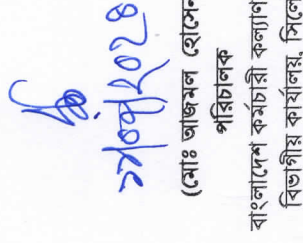 (মোঃ আজমল হোসেন
পরিচালক
বাংলাদেশ কর্মচারী কল্যাণ
বিভাগীয় কার্যালয়, সিলে